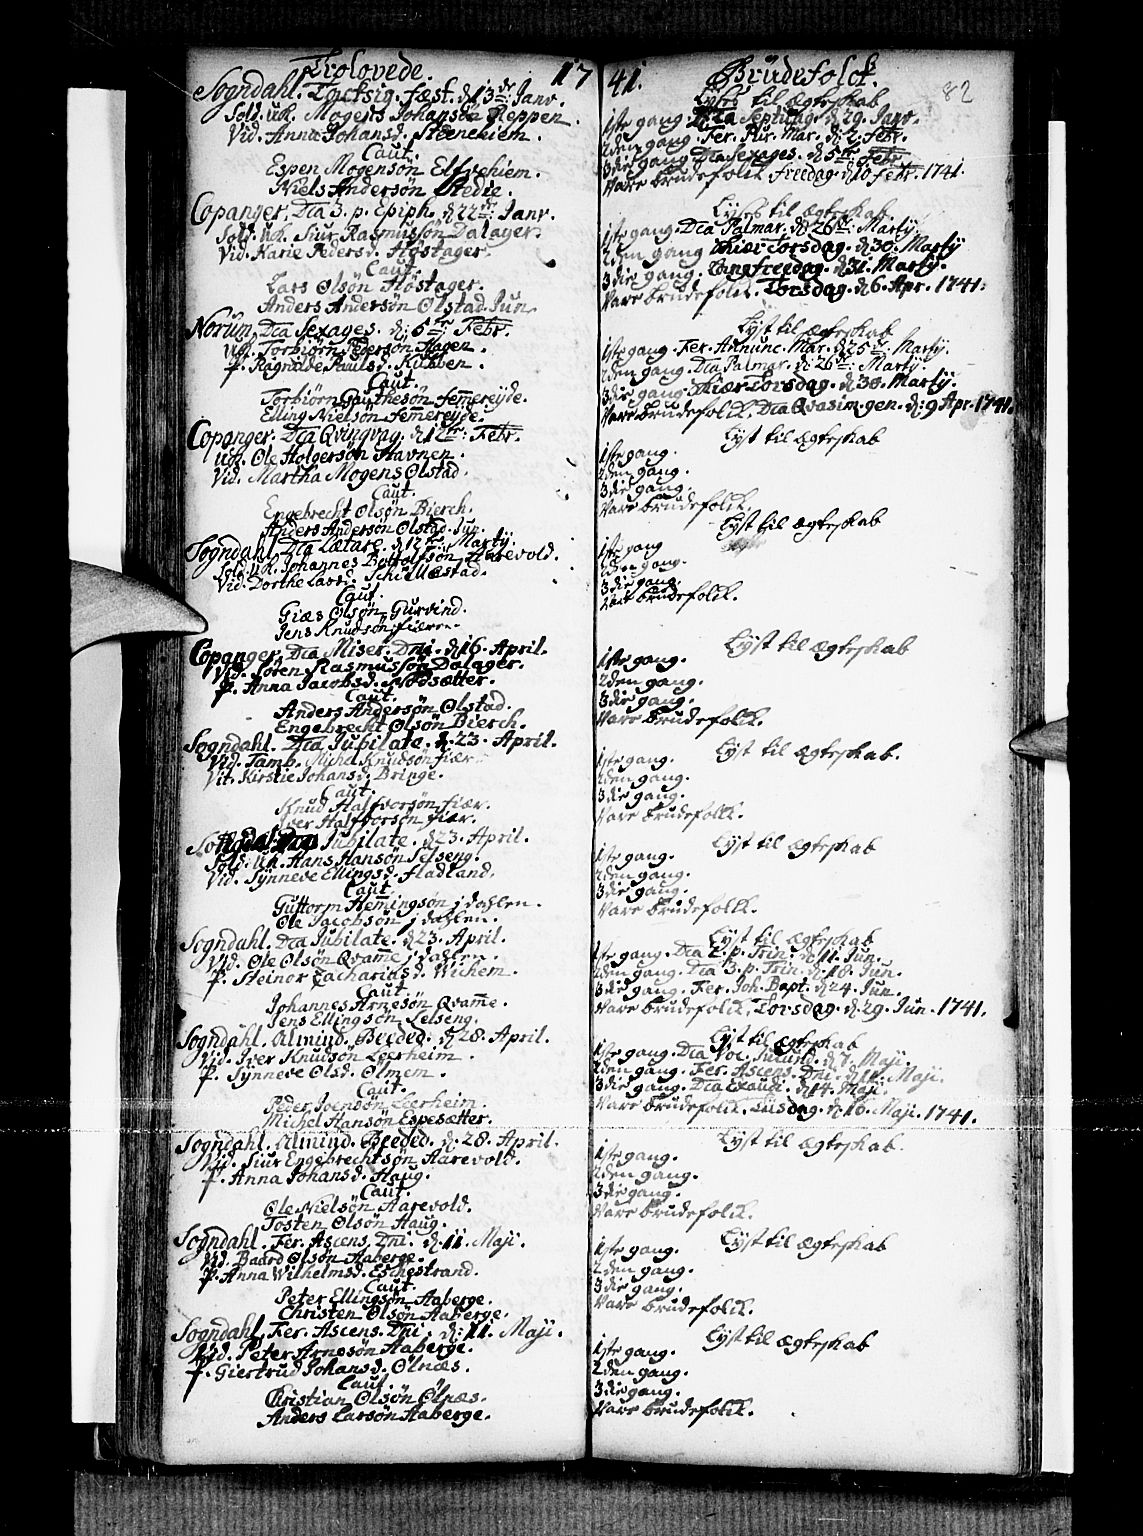 Trolovede. 17
Sogndahl. Tacksig. fæst. d. 13de Janv.
Sold. uk. Mogens Johansön Reppen.
Vid. Anna Johansd. Steenehiem.
Caut.
Espen Mogensön Elfvehiem.
Niels Andersön Stedie.
Copanger. Dca 3. p. Epiph. d. 22de Janv.
Sold. uk. Siur Rasmussön Dalager.
Vid. Karie Pedersd. Höstager.
Caut.
Lars Olsön Höstager.
Anders Andersön Ølstad Jun.
Norum. Dca Sexages. d. 5te Febr.
uk. Torbiörn Pedersön Hagen.
P. Ragnilde Paulsd. Kubben.
Caut.
Torbiörn Gauthesön femmereyde.
Elling Nielsön femmereyde.
Copanger. Dca Qvinqvag. d. 12te Febr.
uk. Ole Holgersön Havnen.
Vid. Martha Mogens Ølstad.
Caut.
Engebrecht Olsön Bierch.
Anders Andersön Ølstad Jun.
Sogndahl. Dca Lætare. d. 12te Martÿ.
Sold. uk. Johannes Bottolfsön Aarevold.
Vid. Dorthe Larsd. Skiellestad.
Caut.
Giæs Olsön Gurvind.
Jens Knudsön fiær.
Copanger. Dca Miser. Dni. d. 16. April.
Vid. Sören Rasmussön Dalager.
P. Anna Jacobsd. Nødsætter.
Caut.
Anders Andersön Ølstad.
Engebrecht Olsön Bierch.
Sogndahl. Dca Jubilate. d. 23. April.
Vid. Tamb. Michel Knudsön fiær.
Vit. Kirstie Johansd. Bringe.
Caut.
Knud Halfvorsön fiær.
Iver Halfvorsön fiær.
Sogndahl. Dca Jubilate. d. 23. April.
Sold. uk. Hans Hansön Selseng.
Vid. Synneve Ellingsd. fladland.
Caut.
Guttorm Hemmingsön j dahlen.
Ole Jacobsön j dahlen.
Sogndahl. Dca Jubilate. d. 23. April.
Vid. Ole Olsön Qvamme j dahlen.
P. Steinor Zachariasd. Wichem.
Caut.
Johannes Arnesön Qvamme.
Jens Ellingsön Selseng.
Sogndahl. Almind. Beeded. d. 28. April.
Vid. Iver Knudsön Leerheim.
P. Synneve Olsd. Ølmem.
Caut.
Peder Joensön Leerheim.
Michel Hansön Espesætter.
Sogndahl. Almind. Beeded. d. 28. April.
Vid. Siur Engebrechtsön Aarevold.
P. Anna Johansd. Haug.
Caut.
Ole Nielsön Aarevold.
Tosten Olsön Haug.
Sogndahl. Fer. Ascens. Dni. d. 11. Maji.
Vid. Baard Olsön Aaberge.
P. Anna Wilhelmsd. Eschestrand.
Caut.
Peter Ellingsön Aaberge.
Christen Olsön Aaberge.
Sogndahl. Fer. Ascens. Dni. d. 11. Maji.
Vid. Peter Arnesön Aaberge.
P. Giertrud Johansd. Ølnæs.
Caut.
Christian Olsön Ølnæs.
Anders Larsön Aaberge.
41. Brüdefolck. 82
Lyses til Ægteskab
1ste gang. Dca Septuag. d. 29. Janv.
2den gang. Fer. Pur. Mar. d. 2. Febr.
3die gang Dca Sexages. d. 5te Febr.
Vare brudefolck freedag d. 10 Febr. 1741.
Lyses til Ægteskab
1ste gang. Dca Palmar. d. 26te Martÿ.
2den gang Skiær Torsdag. d. 30. Martÿ
3die gang. Langfreedag. d. 31. Martÿ.
Vare brudefolck. Torsdag. d. 6. Apr. 1741.
Lyst til Ægteskab
1ste gang. Fer. Annunc. Mar. d. 25te Martÿ.
2den gang. Dca Palmar. d. 26te Martÿ.
3die gang Skiær Torsdag. d. 30. Martÿ.
Vare brudefolck. Dca Qvasim. gen. d. 9 Apr. 1741.
Lyst til Ægteskab
1ste gang.
2den gang.
3die gang.
Vare brudefolck.
Lyst til Ægteskab
1ste gang
2den gang.
3die gang.
Vare brudefolck.
Lyst til Ægteskab
1ste gang.
2den gang.
3die gang.
Vare brudefolck.
Lyst til Ægteskab.
1ste gang.
2den gang.
3die gang.
Vare brudefolck.
Lyst til Ægteskab
1ste gang.
2den gang.
3die gang.
Vare brudefolck.
Lyst til Ægteskab
1ste gang. Dca 2. p. Trin. d. 11. Jun.
2den gang. Dca 3. p. Trin. d. 18. Jun.
3die gang. Fer. Joh. Bapt. d. 24. Jun.
Vare brudefolck. Torsdag. d. 29. Jun. 1741.
Lyst til Ægteskab
1ste gang. Dca Voc. Jucund. d. 7. Maji.
2den gang. Fer. Ascens. Dni. d. 11. Maji.
3die gang. Dca Exaudi. d. 14. Maji.
Vare brudefolck. Tiisdag. d. 16. Maji. 1741.
Lyst til Ægteskab.
1ste gang.
2den gang.
3die gang.
Vare brudefolck.
Lyst til Ægteskab
1ste gang.
2den gang.
3die gang.
Vare brudefolck.
Lyst til Ægteskab
1ste gang.
2den gang.
3die gang.
Vare brudefolck.